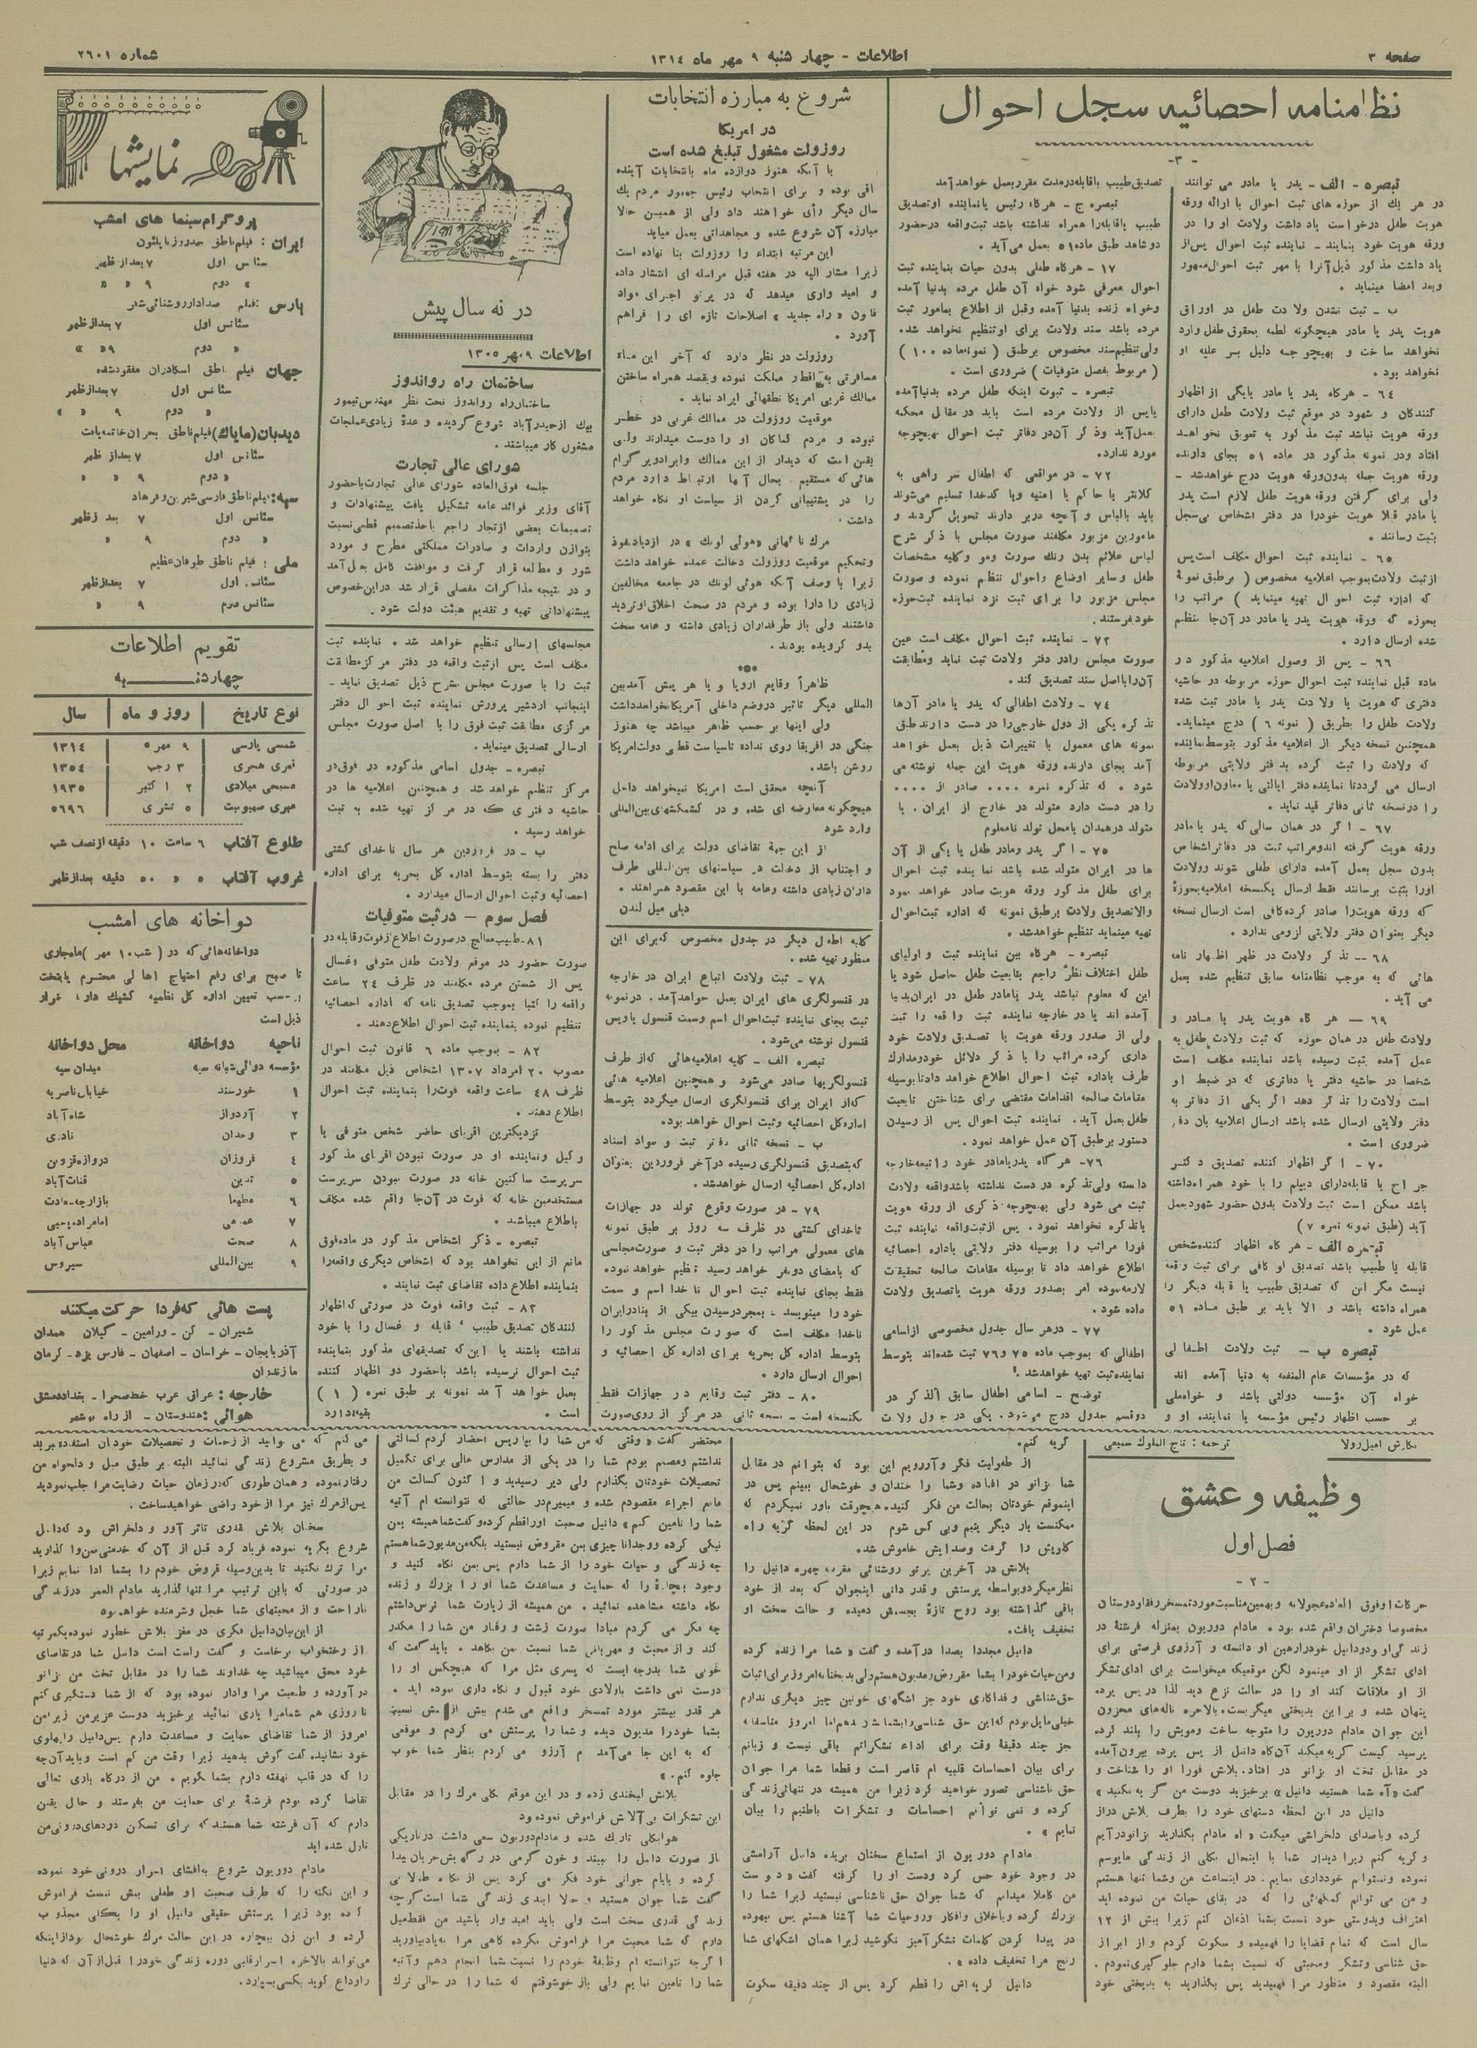 صفحه ۳
اطلاعات - چهار شنبه ۹ مهر ماه ۱۳۱٤
شماره ۲٦۰۱
نظامنامه احصائیه سجل احوال
-۳-
تبصره - الف - پدر یا مادر می توانند
در هر یك از حوزه های ثبت احوال با ارائه ورقه
هویت طفل درخواست یاد داشت ولادت او را در
ورقه هویت خود بنمایند - نماینده ثبت احوال پس از
یاد داشت مذکور ذیل آنرا با مهر ثبت احوال ممهور
وبعد امضا مینماید .
ب - ثبت نشدن ولادت طفل در اوراق
هویت پدر یا مادر هیچگونه لطمه بحقوق طفل وارد
نخواهد ساخت و بهیچوجه دلیل بر علیه او
نخواهد بود .
٦٤ - هرگاه پدر یا مادر یا یکی از اظهار
کنندگان و شهود در موقع ثبت ولادت طفل دارای
ورقه هویت نباشد ثبت مذکور به تعویق نخواهد
افتاد ودر نمونه مذکور در ماده ٥۱ بجای دارنده
ورقه هویت جمله بدون ورقه هویت درج خواهد شد -
ولی برای گرفتن ورقه هویت طفل لازم است پدر
یا مادر قبلا هویت خود را در دفتر اشخاص بی سجل
بثبت رسانند .
٦٥ - نماینده ثبت احوال مکلف است پس
از ثبت ولادت بموجب اعلامیه مخصوص ( بر طبق نمونۀ
که اداره ثبت احوال تهیه مینماید ) مراتب را
بحوزه که ورقه هویت پدر یا مادر در آنجا تنظیم
شده ارسال دارد .
٦٦ - پس از وصول اعلامیه مذکور در
ماده قبل نماینده ثبت احوال حوزه مربوطه در حاشیه
دفتری که هویت یا ولادت پدر یا مادر ثبت شده
ولادت طفل را بطریق ( نمونه ٦ ) درج مینماید.
همچنین نسخه دیگر از اعلامیه مذکور بتوسط نماینده
که ولادت را ثبت کرده بدفتر ولایتی مربوطه
ارسال می گردد تا نماینده دفتر ایالتی یا معاون او ولادت
را در نسخه ثانی دفاتر قید نماید .
٦۷ - اگر در همان سالی که پدر یا مادر
ورقه هویت گرفته اند و مراتب ثبت در دفاتر اشخاص
بدون سجل بعمل آمده دارای طفلی شوند وولادت
اورا بثبت برسانند فقط ارسال یکنسخه اعلامیه بحوزۀ
که ورقه هویت را صادر کرده کافی است ارسال نسخه
دیگر بعنوان دفتر ولایتی لزومی ندارد .
٦۸ - تذکر ولادت در ظهر اظهار نامه
هائی که به موجب نظامنامه سابق تنظیم شده بعمل
می آید .
٦۹ - هر گاه هویت پدر یا مادر و
ولادت طفل در همان حوزه که ثبت ولادت طفل به
عمل آمده بثبت رسیده باشد نماینده مکلف است
شخصا در حاشیه دفتر یا دفاتری که در ضبط او
است ولادت را تذکر دهد اگر یکی از دفاتر به
دفتر ولایتی ارسال شده باشد ارسال اعلامیه بان دفتر
ضروری است .
۷۰ - اگر اظهار کننده تصدیق دکتر
جراح یا قابله دارای دیپلم را با خود همراه داشته
باشد ممکن است ثبت ولادت بدون حضور شهود بعمل
آید (طبق نمونه نمره ۷ )
تبصره الف - هر گاه اظهار کننده شخص
قابله یا طبیب باشد تصدیق او کافی برای ثبت واقعه
نیست مگر این که تصدیق طبیب یا قابله دیگر را
همراه داشته باشد و الا باید بر طبق ماده ٥۱
عمل شود .
تبصره ب - ثبت ولادت اطفالی
که در مؤسسات عام المنفعه به دنیا آمده اند
خواه آن مؤسسه دولتی باشد و خواه ملی
بر حسب اظهار رئیس مؤسسه یا نماینده او و
تصدیق طبیب یا قابله در مدت مقرر بعمل خواهد آمد
تبصره ج - هر گاه رئیس یا نماینده او تصدیق
طبیب یا قابله را همراه نداشته باشد ثبت واقعه در حضور
دو شاهد طبق ماده ٥۱ بعمل می آید .
۱۷ - هر گاه طفلی بدون حیات بنماینده ثبت
احوال معرفی شود خواه آن طفل مرده بدنیا آمده
وخواه زنده بدنیا آمده وقبل از اطلاع بمامور ثبت
مرده باشد سند ولادت برای او تنظیم نخواهد شد .
ولی تنظیم سند مخصوص بر طبق ( نمونه ماده ۱۰۰ )
( مربوط بفصل متوفیات ) ضروری است .
تبصره - ثبوت اینکه طفل مرده بدنیا آمده
یا پس از ولادت مرده است باید در مقابل محکمه
بعمل آید وذکر آن در دفاتر ثبت احوال بهیچوجه
مورد ندارد .
۷۲ - در مواقعی که اطفال سر راهی به
کلانتر یا حاکم یا امنیه ویا کدخدا تسلیم می شوند
باید بالباس و آنچه در بر دارند تحویل گردند و
مامورین مزبور مکلفند صورت مجلس با ذکر شرح
لباس علائم بدن رنك صورت ومو وکلیه مشخصات
طفل و سایر اوضاع و احوال تنظیم نموده و صورت
مجلس مزبور را برای ثبت نزد نماینده ثبت حوزه
خود فرستند .
۷۳ - نماینده ثبت احوال مکلف است عین
صورت مجلس را در دفتر ولادت ثبت نماید ومطابقت
آن را با اصل سند تصدیق کند .
۷٤ - ولادت اطفالی که پدر یا مادر آن ها
تذکره یکی از دول خارجی را در دست دارند طبق
نمونه های معمول با تغییرات ذیل بعمل خواهد
آمد بجای دارنده ورقه هویت این جمله نوشته می
شود . که تذکره نمره .... صادر از ....
را در دست دارد متولد در خارج از ایران . یا
متولد در همدان یا محل تولد نامعلوم
۷٥ - اگر پدر و مادر طفل یا یکی از آن
ها در ایران متولد شده باشد نماینده ثبت احوال
برای طفل مذکور ورقه هویت صادر خواهد نمود
والا تصدیق ولادت بر طبق نمونه که اداره ثبت احوال
تهیه مینماید تنظیم خواهد شد .
تبصره - هر گاه بین نماینده ثبت و اولیای
طفل اختلاف نظر راجع بتابعیت طفل حاصل شود یا
این که معلوم نباشد پدر یا مادر طفل در ایران بدنیا
آمده اند یا در خارجه نماینده ثبت واقعه را ثبت
ولی از صدور ورقه هویت یا تصدیق ولادت خود
داری کرده مراتب را با ذکر دلائل خود ومدارك
طرف باداره ثبت احوال اطلاع خواهد داد تا بوسیله
مقامات صالحه اقدامات مقتضی برای شناختن تابعیت
طفل بعمل آید. نماینده ثبت احوال پس از رسیدن
دستور بر طبق آن عمل خواهد نمود .
۷٦ - هر گاه پدر یا مادر خود را تبعه خارجه
دانسته ولی تذکره در دست نداشته باشد واقعه ولادت
ثبت می شود ولی بهیچوجه ذکری از ورقه هویت
یا تذکره نخواهد نمود . پس از ثبت واقعه نماینده ثبت
فورا مراتب را بوسیله دفتر ولایتی باداره احصائیه
اطلاع خواهد داد تا بوسیله مقامات صالحه تحقیقات
لازمه نموده امر بصدور ورقه هویت یا تصدیق ولادت
داده شود .
۷۷ - در هر سال جدول مخصوصی از اسامی
اطفالی که بموجب ماده ۷٥ و ۷٦ ثبت شده اند بتوسط
نماینده ثبت تهیه خواهد شد .
توضیح - اسامی اطفال سابق الذکر در
دو قسم جدول درج می شود . یکی در جدول ولادت
شروع به مبارزه انتخابات
در امریکا
روزولت مشغول تبلیغ شده است
با آنکه هنوز دوازده ماه بانتخابات آینده
باقی بوده و برای انتخاب رئیس جمهور مردم یك
سال دیگر رأی خواهند داد ولی از همین حالا
مبارزه آن شروع شده و مجاهداتی بعمل میاید
این مرتبه ابتداء را روزولت بنا نهاده است
زیرا مشار الیه در هفته قبل مراسله ای انتشار داده
و امید واری میدهد که در پرتو اجرای مواد
قانون « راه جدید » اصلاحات تازه ای را فراهم
آورد .
روزولت در نظر دارد که آخر این ماه
مسافرتی به اقطار مملکت نموده وبقصد همراه ساختن
ممالك غربی امریکا نطقهائی ایراد نماید .
موقعیت روزولت در ممالك غربی در خطر
نبوده و مردم کماکان او را دوست میدارند ولی
یقین است که دیدار از این ممالك وایراد پروگرام
هائی که مستقیم بحال آنها ارتباط دارد مردم
را در پشتیبانی کردن از سیاست او نگاه خواهد
داشت .
مرك ناگهانی «هوئی لونك » در ازدیاد نفوذ
وتحکیم موقعیت روزولت دخالت عمده خواهد داشت
زیرا با وصف آنکه هوئی لونك در جامعه مخالفین
زیادی را دارا بوده و مردم در صحت اخلاق او تردید
داشتند ولی باز طرفداران زیادی داشته و عامه سخت
بدو گرویده بودند .
***
ظاهراً وقایع اروپا و یا هر پیش آمد بین
المللی دیگر تاثیر در وضع داخلی آمریکا نخواهد داشت
ولی اینها بر حسب ظاهر میباشد چه هنوز
جنگی در افریقا روی نداده تا سیاست قطعی دولت امریکا
روشن باشد .
آنچه محقق است امریکا نمیخواهد داخل
هیچگونه معارضه ای شده و در کشمکشهای بین المللی
وارد شود
از این جهة تقاضای دولت برای ادامه صلح
و اجتناب از دخالت در سیاستهای بین المللی طرف
داران زیادی داشته وعامه با این مقصود همراهند .
دیلی میل لندن
کلیه اطفال دیگر در جدول مخصوص که برای این
منظور تهیه شده .
۷۸ - ثبت ولادت اتباع ایران در خارجه
در قنسولگری های ایران بعمل خواهد آمد . در نمونه
ثبت بجای نماینده ثبت احوال اسم وسمت قنسول یا ویس
قنسول نوشته می شود .
تبصره الف - کلیه اعلامیه هائی که از طرف
قنسولگریها صادر می شود و همچنین اعلامیه هائی
که از ایران برای قنسولگری ارسال میگردد بتوسط
اداره کل احصائیه وثبت احوال خواهد بود .
ب - نسخه ثانی دفتر ثبت و سواد اسناد
که بتصدیق قنسولگری رسیده در آخر فروردین بعنوان
اداره کل احصائیه ارسال خواهد شد .
۷۹ - در صورت وقوع تولد در جهازات
ناخدای کشتی در ظرف سه روز بر طبق نمونه
های معمولی مراتب را در دفتر ثبت و صورت مجلسی
که بامضای دو نفر خواهد رسید تنظیم خواهد نموده
فقط بجای نماینده ثبت احوال ناخدا اسم و سمت
خود را مینویسد . بمجرد رسیدن بیکی از بنادر ایران
ناخدا مکلف است که صورت مجلس مذکور را
بتوسط اداره کل بحریه برای اداره کل احصائیه و
احوال ارسال دارد .
۸۰ - دفتر ثبت وقایع در جهازات فقط
یکنسخه است - نسخه ثانی در مرکز از روی صورت
در نه سال پیش
اطلاعات ۹ مهر ۱۳۰٥
ساختمان راه رواندوز
ساختمان راه رواندوز تحت نظر مهندس تیمور
بیك از حیدرآباد شروع گردیده و عدۀ زیادی عملجات
مشغول کار میباشند .
شورای عالی تجارت
جلسه فوق العاده شورای عالی تجارت با حضور
آقای وزیر فوائد عامه تشکیل یافت پیشنهادات و
تصمیمات بعضی از تجار راجع باخذ تصمیم قطعی نسبت
بتوازن واردات و صادرات مملکتی مطرح و مورد
شور و مطالعه قرار گرفت و موافقت کامل بعمل آمد
و در نتیجه مذاکرات مفصلی قرار شد در این خصوص
پیشنهاداتی تهیه و تقدیم هیئت دولت شود .
مجلسهای ارسالی تنظیم خواهد شد . نماینده ثبت
مکلف است پس از ثبت واقعه در دفتر مرکز مطابقت
ثبت را با صورت مجلس بشرح ذیل تصدیق نماید -
اینجانب اردشیر پرورش نماینده ثبت احوال دفتر
مرکزی مطابقت ثبت فوق را با اصل صورت مجلس
ارسالی تصدیق مینماید .
تبصره - جدول اسامی مذکوره در فوق در
مرکز تنظیم خواهد شد و همچنین اعلامیه ها در
حاشیه دفتری که در مرکز تهیه شده به ثبت
خواهد رسید .
ب - در فروردین هر سال ناخدای کشتی
دفتر را بسته بتوسط اداره کل بحریه برای اداره
احصائیه وثبت احوال ارسال میدارد .
فصل سوم - در ثبت متوفیات
۸۱ - طبیب معالج در صورت اطلاع از فوت وقابله در
صورت حضور در موقع ولادت طفل متوفی وغسال
پس از شستن مرده مکلفند در ظرف ۲٤ ساعت
واقعه را کتبا بموجب تصدیق نامه که اداره احصائیه
تنظیم نموده بنماینده ثبت احوال اطلاع دهند .
۸۲ - بموجب ماده ٦ قانون ثبت احوال
مصوب ۲۰ امرداد ۱۳۰۷ اشخاص ذیل مکلفند در
ظرف ٤۸ ساعت واقعه فوت را بنماینده ثبت احوال
اطلاع دهند .
نزدیکترین اقربای حاضر شخص متوفی یا
وکیل و نماینده او در صورت نبودن اقربای مذکور
سرپرست ساکنین خانه در صورت نبودن سرپرست
مستخدمین خانه که فوت در آنجا واقع شده مکلف
باطلاع میباشند .
تبصره - ذکر اشخاص مذکور در ماده فوق
مانع از این نخواهد بود که اشخاص دیگری واقعه را
بنماینده اطلاع داده تقاضای ثبت نمایند .
۸۳ - ثبت واقعه فوت در صورتی که اظهار
کنندگان تصدیق طبیب ، قابله و غسال را با خود
نداشته باشند یا این که تصدیقهای مذکور بنماینده
ثبت احوال نرسیده باشد باحضور دو اظهار کننده
بعمل خواهد آمد نمونه بر طبق نمره ( ۱ )
است . بقیه دارد
نمایشها
پروگرام سینما های امشب
ایران : فیلم ناطق
سئانس اول ۷ بعد از ظهر
« دوم ۹ « «
پارس : فیلم صدادار روشنائی شهر
سئانس اول ۷ بعد از ظهر
« دوم ۹ « »
جهان فیلم ناطق اسکادران مفقود شده
سئانس اول ۷ بعد از ظهر
« دوم ۹ « »
دیدبان (مایاك) فیلم ناطق بحران خاتمه یافت
سئانس اول ۷ بعد از ظهر
« دوم ۹ « «
سپه : فیلم ناطق فارسی شیرین و فرهاد
سئانس اول ۷ بعد از ظهر
« دوم ۹ « «
ملی : فیلم ناطق طوفان عظیم
سئانس اول ۷ بعد از ظهر
سئانس دوم ۹ « «
تقویم اطلاعات
چهارشنبه
نوع تاریخ | روز و ماه | سال
شمسی پارسی ۹ مهر ۱۳۱٤
قمری هجری ۳ رجب ۱۳٥٤
مسیحی میلادی ۲ اکتبر ۱۹۳٥
عبری صیهونیت ٥ تشری ٥٦۹٦
طلوع آفتاب ٦ ساعت ۱۰ دقیقه از نصف شب
غروب آفتاب ٥ « ٥۰ دقیقه بعد از ظهر
دواخانه های امشب
دواخانه هائی که در ( شب ۱۰ مهر ) ماه جاری
تا صبح برای رفع احتیاج اهالی محترم پایتخت
بر حسب تعیین اداره کل نظمیه کشیك دارند قرار
ذیل است
ناحیه دواخانه محل دواخانه
مؤسسه دوائی شبانه سپه میدان سپه
۱ خورسند خیابان ناصریه
۲ آردواز شاه آباد
۳ وحدان نادری
٤ فروزان دروازه قزوین
٥ تدین قنات آباد
٦ مطهما بازارچه سعادت
۷ عمومی امامزاده یحیی
۸ صحت عباس آباد
۹ بین المللی سیروس
پست هائی که فردا حرکت میکنند
شمیران - کن - ورامین - گیلان همدان
آذربایجان - خراسان - اصفهان - فارس یزد - کرمان
مازندران
خارجه : عراق عرب خط صحرا - بغداد دمشق
هوائی : هندوستان - از راه بوشهر
نگارش امیل زولا
ترجمه : تاج الملوك سمیعی
وظیفه و عشق
فصل اول
-۲-
حرکات او فوق العاده عجولانه و بهمین مناسبت مورد تمسخر رفقا و دوستان
مخصوصا دختران واقع شده بود . مادام دوریون بمنزله فرشتۀ در
زندگی او ودودانیل خود را رهین او دانسته و آرزوی فرصتی برای
ادای تشکر از او مینمود لکن موقعیکه میخواست برای ادای تشکر
از او ملاقات کند او را در حالت نزع دید لذا در پس پرده
پنهان شده و براین بدبختی میگریست. بالاخره ناله های محزون
این جوان مادام دوریون را متوجه ساخت ومویش را بلند کرده
پرسید کیست گریه میکند آن گاه دانیل از پس پرده بیرون آمده
در مقابل تخت او بزانو در افتاد. بلانش فورا او را شناخت و
گفت «آه شما هستید دانیل» برخیزید دوست من گریه نکنید»
دانیل در این لحظه دستهای خود را بطرف بلانش دراز
کرده وبا صدای دلخراشی میگفت « اه مادام بگذارید بزانو درآیم
و گریه کنم زیرا دیدار شما با اینحال بکلی از زندگی مایوسم
نموده ونمیتوانم خودداری نمایم . در اینساعت من وشما تنها هستیم
و من می توانم کمکهائی را که در بقای حیات من نموده اید
اعتراف وبدوستی خود نسبت بشما اذعان کنم زیرا بیش از ۱۲
سال است که تمام قضایا را فهمیده و سکوت کردم و از ابراز
حق شناسی وتشکر ومحبتی که نسبت بشما دارم جلوگیری نمودم .
البته مقصود و منظور مرا فهمیدید پس بگذارید به بدبختی خود
گریه کنم .
از طفولیت فکر وآرزویم این بود که بتوانم در مقابل
شما بزانو در افتاده وشما را خندان و خوشحال ببینم پس در
اینموقع خودتان بحالت من فکر کنید . هیچوقت باور نمیکردم که
ممکنست بار دیگر یتیم وبی کس شوم در این لحظه گریه راه
گلویش را گرفت وصدایش خاموش شد .
بلانش در آخرین پرتو روشنائی مغرب چهره دانیل را
نظر میکرد وبواسطه پرستش و قدر دانی اینجوان که بعد از خود
باقی گذاشته بود روح تازۀ بجسمش دمیده و حالت سخت او
تخفیف یافت .
دانیل مجددا بصدا درآمده و گفت « شما مرا زنده کرده
ومن حیات خود را بشما مقروض ومدیون هستم ولی بدبختانه امروز برای اثبات
حق شناسی و فداکاری خود جز اشگهای خونین چیز دیگری ندارم
خیلی مایل بودم که این حق شناسی را بشما نشان دهم اما امروز متاسفانه
جز چند دقیقۀ وقت برای اداء تشکراتم باقی نیست و زبانم
برای بیان احساسات قلبیه ام قاصر است و قطعا شما مرا جوان
حق ناشناسی تصور خواهید کرد زیرا من همیشه در تنهائی زندگی
کرده و نمی توانم احساسات و تشکرات باطنیم را بیان
نمایم » .
مادام دوریون از استماع سخنان بریده دانیل آرامشی
در وجود خود حس کرد ودست او را گرفته گفت « دوست
من کاملا میدانم که شما جوان حق ناشناسی نیستید زیرا شما را
بزرك کرده وباخلاق وافکار وروحیات شما آشنا هستم پس بیهوده
در پیدا کردن کلمات تشکر آمیز نکوشید زیرا همان اشگهای شما
رنج مرا تخفیف داده » .
دانیل گریه اش را قطع کرد پس از چند دقیقه سکوت
محتضر گفت « وقتی که من شما را بپاریس احضار کردم کسالتی
نداشتم ومصمم بودم شما را در یکی از مدارس عالی برای تکمیل
تحصیلات خودتان بگذارم ولی دیر رسیدید و اکنون کسالت من
مانع اجراء مقصودم شده و میمیرم در حالتی که نتوانسته ام آتیه
شما را تامین کنم » دانیل صحبت او را قطع کرده و گفت شما همیشه بمن
نیکی کرده و وجدانا چیزی بمن مقروض نیستید بلکه من مدیون شما هستم
چه زندگی و حیات خود را از شما دارم پس بمن نگاه کنید و
وجود بیچارۀ را که حمایت و مساعدت شما او را بزرك و زنده
نگاه داشته مشاهده نمائید . من همیشه از زیارت شما ترس داشتم
چه فکر می کردم مبادا صورت زشت و رفتار من شما را مکدر
کند و از محبت و مهربانی شما نسبت بمن بکاهد . باید گفت که
خوبی شما بدرجه ایست که پسری مثل مرا که هیچکس او را
دوست نمی داشت باولادی خود قبول و نگاه داری نموده اید .
هر قدر بیشتر مورد تمسخر واقع می شدم بیش از پیش نسبت
بشما خود را مدیون دیده و شما را پرستش می کردم و موقعی
که به این جا می آمدم آرزو می کردم بنظر شما خوب
جلوه کنم . »
بلانش لبخندی زده و در این موقع بکلی مرك را در مقابل
این تشکرات بی آلایش فراموش نموده بود
هوا بکلی تاریك شده و مادام دوریون سعی داشت در تاریکی
باز صورت دانیل را ببیند و خون گرمی در رگهایش جریان پیدا
کرده و بایام جوانی خود فکر می کرد پس از نگاه طولانی
گفت شما جوان هستید و حالا ابتدای زندگی شما است گرچه
زندگی قدری سخت است ولی باید امیدوار باشید من فقط میل
دارم که شما محبت مرا فراموش نکرده گاهی مرا به یاد بیاورید
اگرچه نتوانسته ام وظیفۀ خودم را نسبت بشما انجام دهم وآتیه
شما را تامین نمایم ولی باز خوشوقتم که شما را در حالی ترك
می کنم که می توانید از زحمات و تحصیلات خودتان استفاده ببرید
و بطریق مشروع زندگی نمائید البته بر طبق میل و دلخواه من
رفتار نموده و همان طوری که در زمان حیات رضایت مرا جلب نمودید
پس از مرك نیز مرا از خود راضی خواهید ساخت .
سخنان بلانش قدری تاثر آور و دلخراش بود که دانیل
شروع بگریه نموده فریاد کرد قبل از آن که خدمتی بمن واگذارید
مرا ترك نکنید تا بدینوسیله قروض خودم را بشما ادا نمایم زیرا
در صورتی که باین ترتیب مرا تنها گذارید مادام العمر در زندگی
ناراحت و از محبتهای شما خجل وشرمنده خواهم بود
از این بیان دانیل فکری در مغز بلانش خطور نموده یکمرتبه
از رختخواب برخاست و گفت راست است دانیل شما در تقاضای
خود محق میباشید چه خداوند شما را در مقابل تخت من بزانو
درآورده و طبیعت مرا وادار نموده بود که از شما دستگیری کنم
تا روزی هم شما مرا یاری نمائید برخیزید دوست عزیزمن زیرا من
امروز از شما تقاضای حمایت و مساعدت دارم پس دانیل را پهلوی
خود نشانیده گفت گوش بدهید زیرا وقت من کم است وباید آن چه
را که در قلب نهفته دارم بشما بگویم . من از درگاه باری تعالی
تقاضا کرده بودم فرشتۀ برای حمایت من بفرستد و حال یقین
دارم که آن فرشته شما هستید که برای تسکین دردهای درونی من
نازل شده اید
مادام دوریون شروع بافشای اسرار درونی خود نموده
و این نکته را که طرف صحبت او طفلی بیش نیست فراموش
کرده بود زیرا پرستش حقیقی دانیل او را بکلی مجذوب
کرده و این زن بیچاره در این حالت مرك خوشحال بود از اینکه
می تواند بالاخره اسرار قلبی دوره زندگی خود را قبل از آن که دنیا
را وداع گوید بکسی بسپارد .